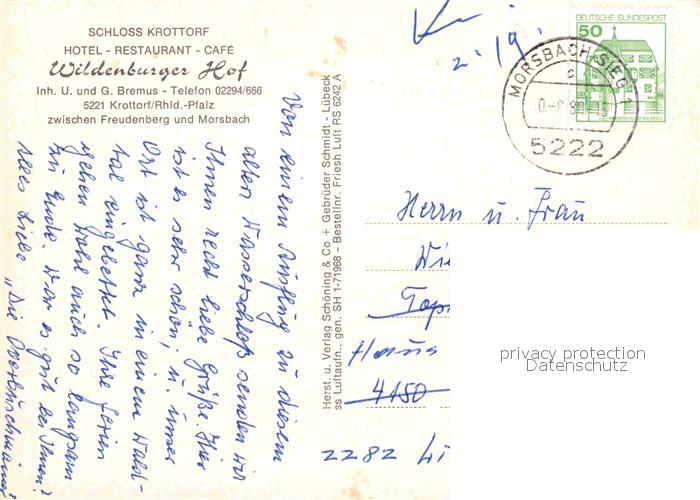 SCHLOSS KROTTORF
HOTEL - RESTAURANT - CAFÉ
Wildenburger Hof
Inh. U. und G. Bremus - Telefon 02294/666
5221 Krottorf/Rhld.-Pfalz
zwischen Freudenberg und Morsbach
Von einem Ausflug zu diesem
alten Wasserschloß senden wir
Ihnen recht liebe Grüße. Hier
ist es sehr schön, u. unser
Ort ist ganz in einem Wald-
tal eingebettet. Ihre Ferien
gehen wohl auch so langsam
zu Ende. War es gut bei Ihnen?
Alles Liebe
"Die
Herst. u. Verlag Schöning & Co + Gebrüder Schmidt - Lübeck
ss Luftaufn., gen. SH 1-71968 - Bestellnr. Friesh Luft RS 6242 A
DEUTSCHE BUNDESPOST
50
MORSBACH, SIEG 1
c
5222
Herrn u. Frau
Wi
Top
Haus
4150
2282 Li
privacy protection
Datenschutz